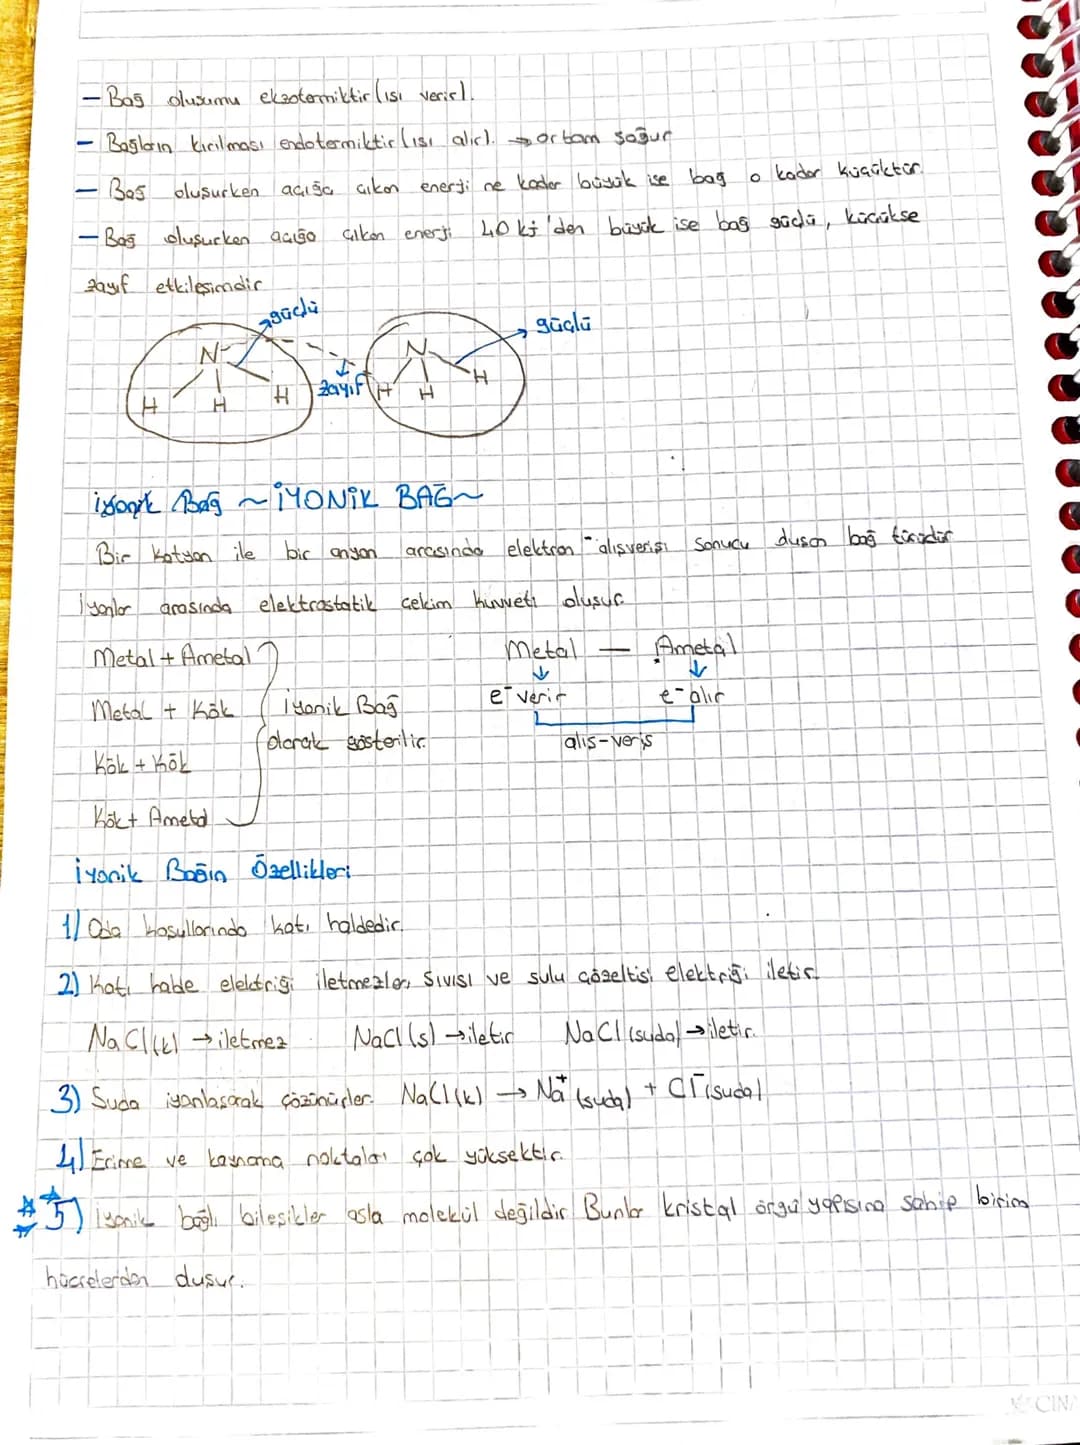 - Bağ oluşumu ekzotermiktir (ısı verir).
- Bağların kırılması endotermiktir (ısı alır). → ortam soğur
- Bağ oluşurken açığa çıkan enerji ne kadar büyük ise bag o kadar küçüktür.
- Bağ oluşurken açığa çıkan enerji 40 kj'den büyük ise bağ güçlü, küçükse
zayıf etkileşimdir
güçlü güçlü
N N
zayıf
H H H H H H
iyonik Bağ ~İYONİK BAĞ~
Bir katyon ile bir anyon arasında elektron alışverişi sonucu duşan bağ türüdür
İyonlar arasında elektrostatik çekim kuvveti oluşur.
Metal + Ametal Metal — Ametal
Metal + Kök İyonik Bağ e⁻ verir e⁻ alır
olarak gösterilir. alış-veriş
Kök + Kök
Kök + Ametal
İyonik Bağın Özellikleri
1) Oda koşullarında katı haldedir.
2) Katı halde elektriği iletmezler, sıvısı ve sulu çözeltisi elektriği iletir.
NaCl(k) → iletmez NaCl(s) → iletir NaCl(suda) → iletir.
3) Suda iyonlaşarak çözünürler. NaCl(k) → Na⁺(suda) + Cl⁻(suda)
4) Erime ve kaynama noktaları çok yüksektir.
5) İyonik bağlı bileşikler asla molekül değildir. Bunlar kristal örgü yapısına sahip birim
hücrelerden duşur.